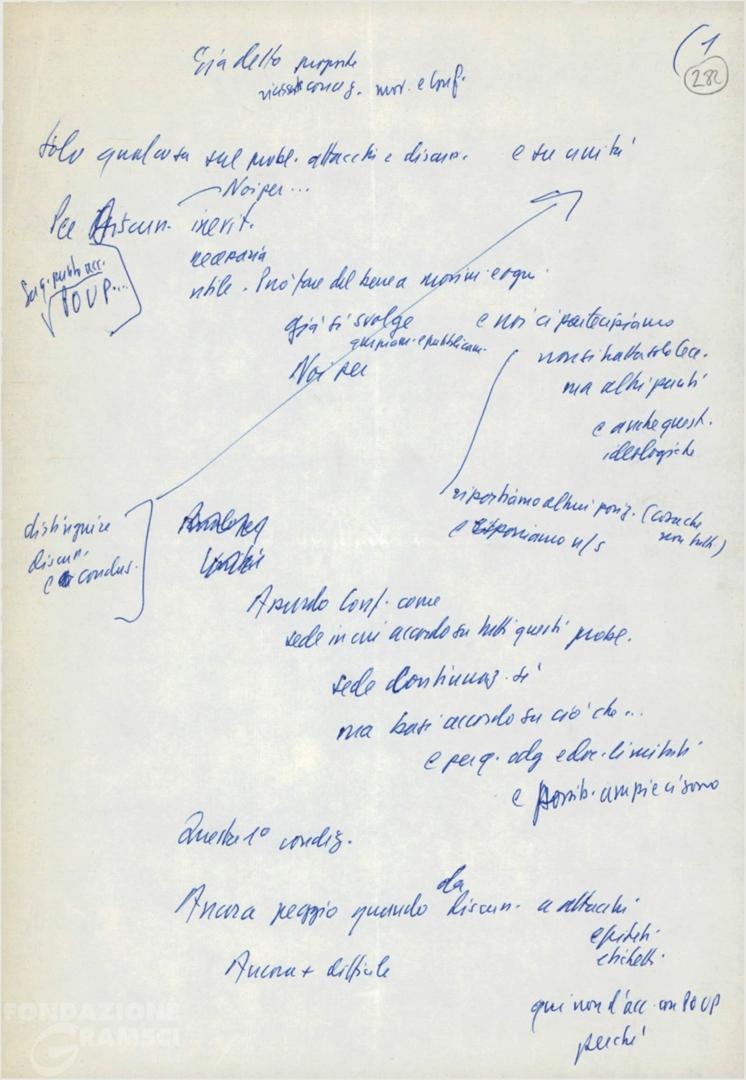 (1
282
Già detto proposte
riassunt. conveg. mov. e Conf.
Solo qualcosa sul probl. attacchi e discuss. e su unità
Noi per...
Per Discuss. inevit.
necessaria
utile. Può fare del bene a movim. e ogn.
Su q. pubbl. acc.
POUP...
già si svolge e noi ci partecipiamo
Noi per
non si tratta solo Cec.
ma altri punti
e anche quest.
ideologiche
riportiamo altrui posiz. (cosa che
non tutti)
e esponiamo n/s
distinguere
discuss.
e conclus.
Assurdo Conf. come
sede in cui accordo su tutti questi probl.
sede continuaz. sì
ma basi accordo su ciò che...
e per q. odg e doc. limitati
e possib. ampie ci sono
Questa 1º condiz.
Ancora peggio quando da discuss. a attacchi
epiteti
etichett.
Ancora + difficile
qui non d'acc. con POUP
perché
FONDAZIONE
GRAMSCI